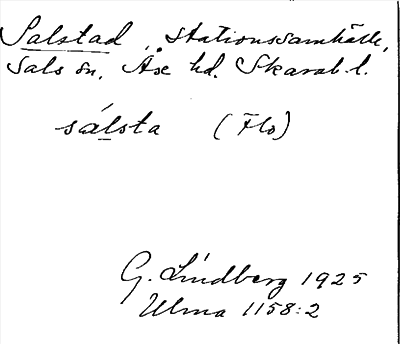 Salstad, stationssamhälle,
Sals sn, Åse hd. Skarab. l.
sálsta (Flo)
G. Lindberg 1925
Ulma 1158:2